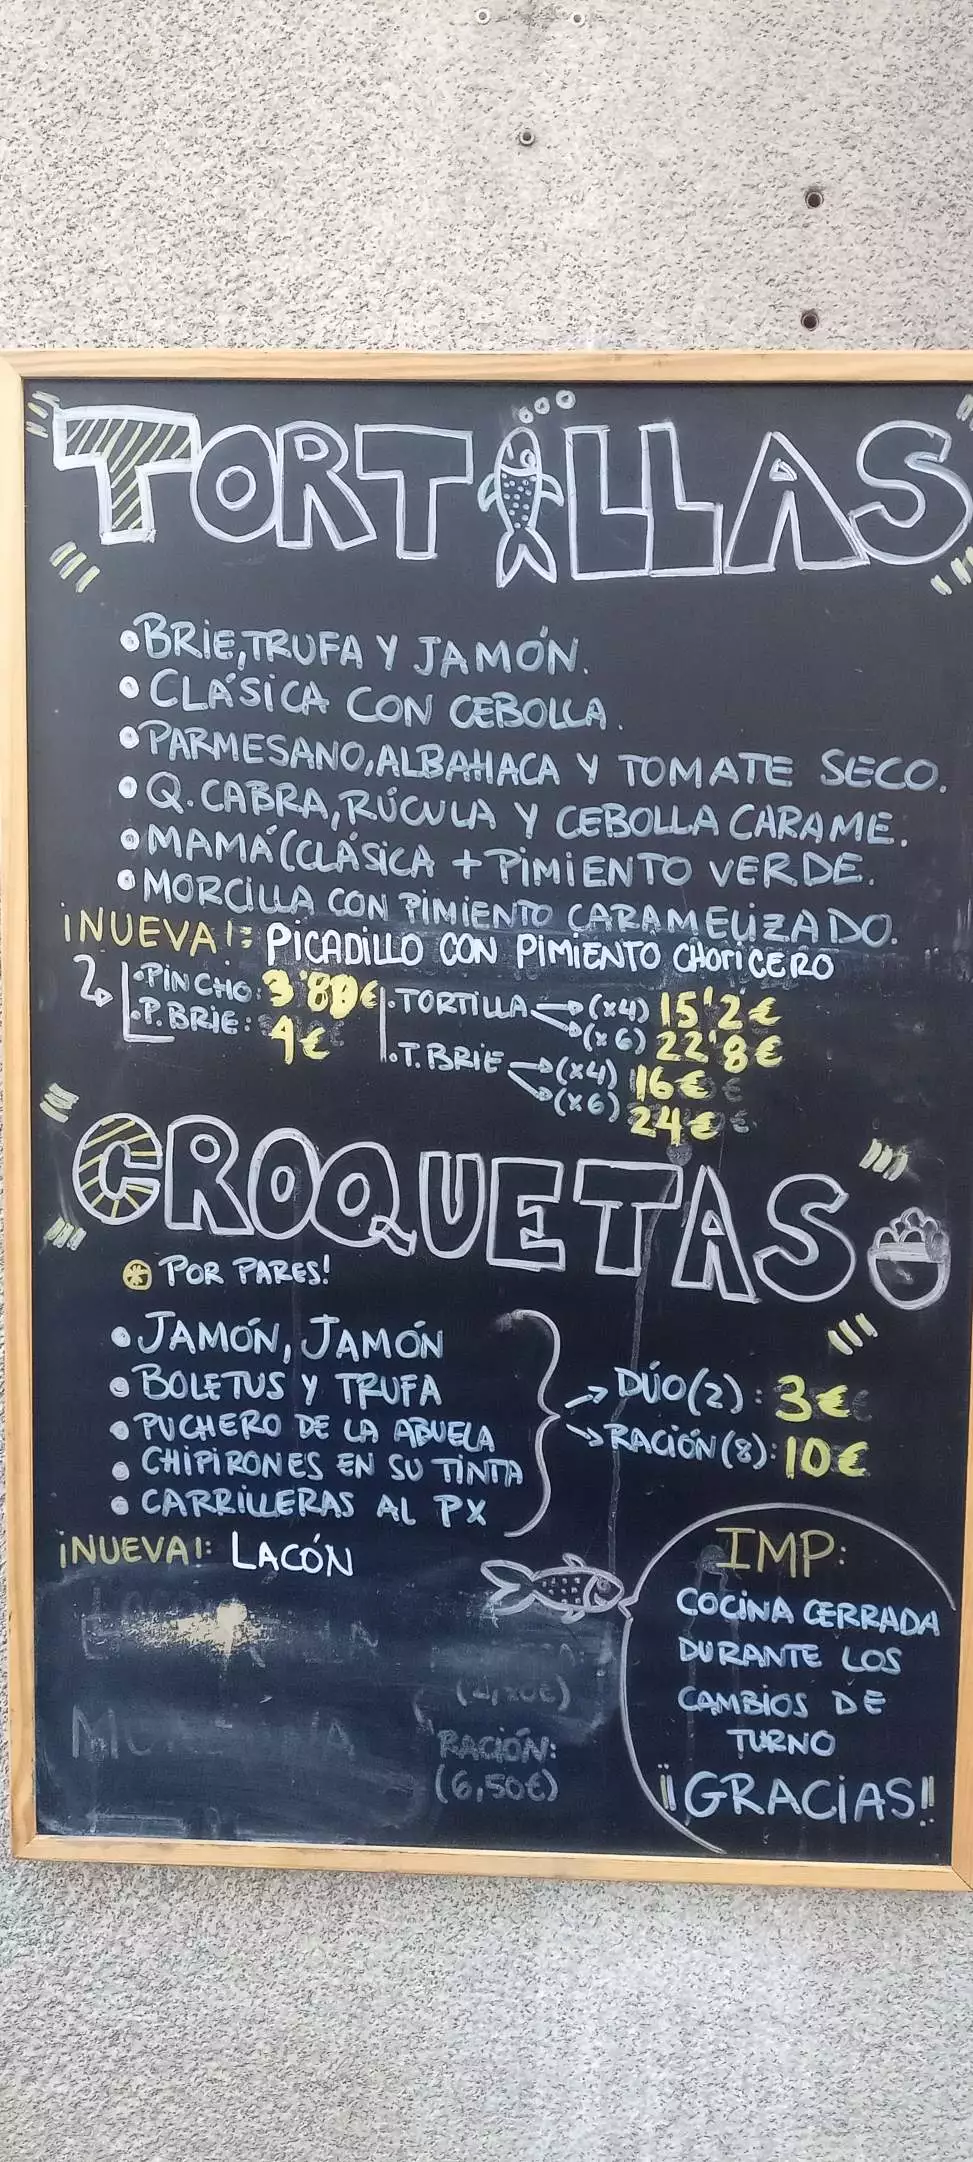 TORTILLAS
• BRIE, TRUFA Y JAMÓN.
• CLÁSICA CON CEBOLLA.
• PARMESANO, ALBAHACA Y TOMATE SECO.
• Q. CABRA, RÚCULA Y CEBOLLA CARAME.
• MAMÁ (CLÁSICA + PIMIENTO VERDE.
• MORCILLA CON PIMIENTO CARAMELIZADO.
¡NUEVA!: PICADILLO CON PIMIENTO CHORICERO
• PINCHO: 3'80€
• P. BRIE: 4€
• TORTILLA → (x4) 15'2€
→ (x6) 22'8€
• T. BRIE → (x4) 16€
→ (x6) 24€
CROQUETAS
POR PARES!
• JAMÓN, JAMÓN
• BOLETUS Y TRUFA
• PUCHERO DE LA ABUELA
• CHIPIRONES EN SU TINTA
• CARRILLERAS AL PX
→ DÚO (2): 3€
→ RACIÓN (8): 10€
¡NUEVA!: LACÓN
RACIÓN:
(6,50€)
IMP:
COCINA CERRADA
DURANTE LOS
CAMBIOS DE
TURNO
¡¡GRACIAS!!